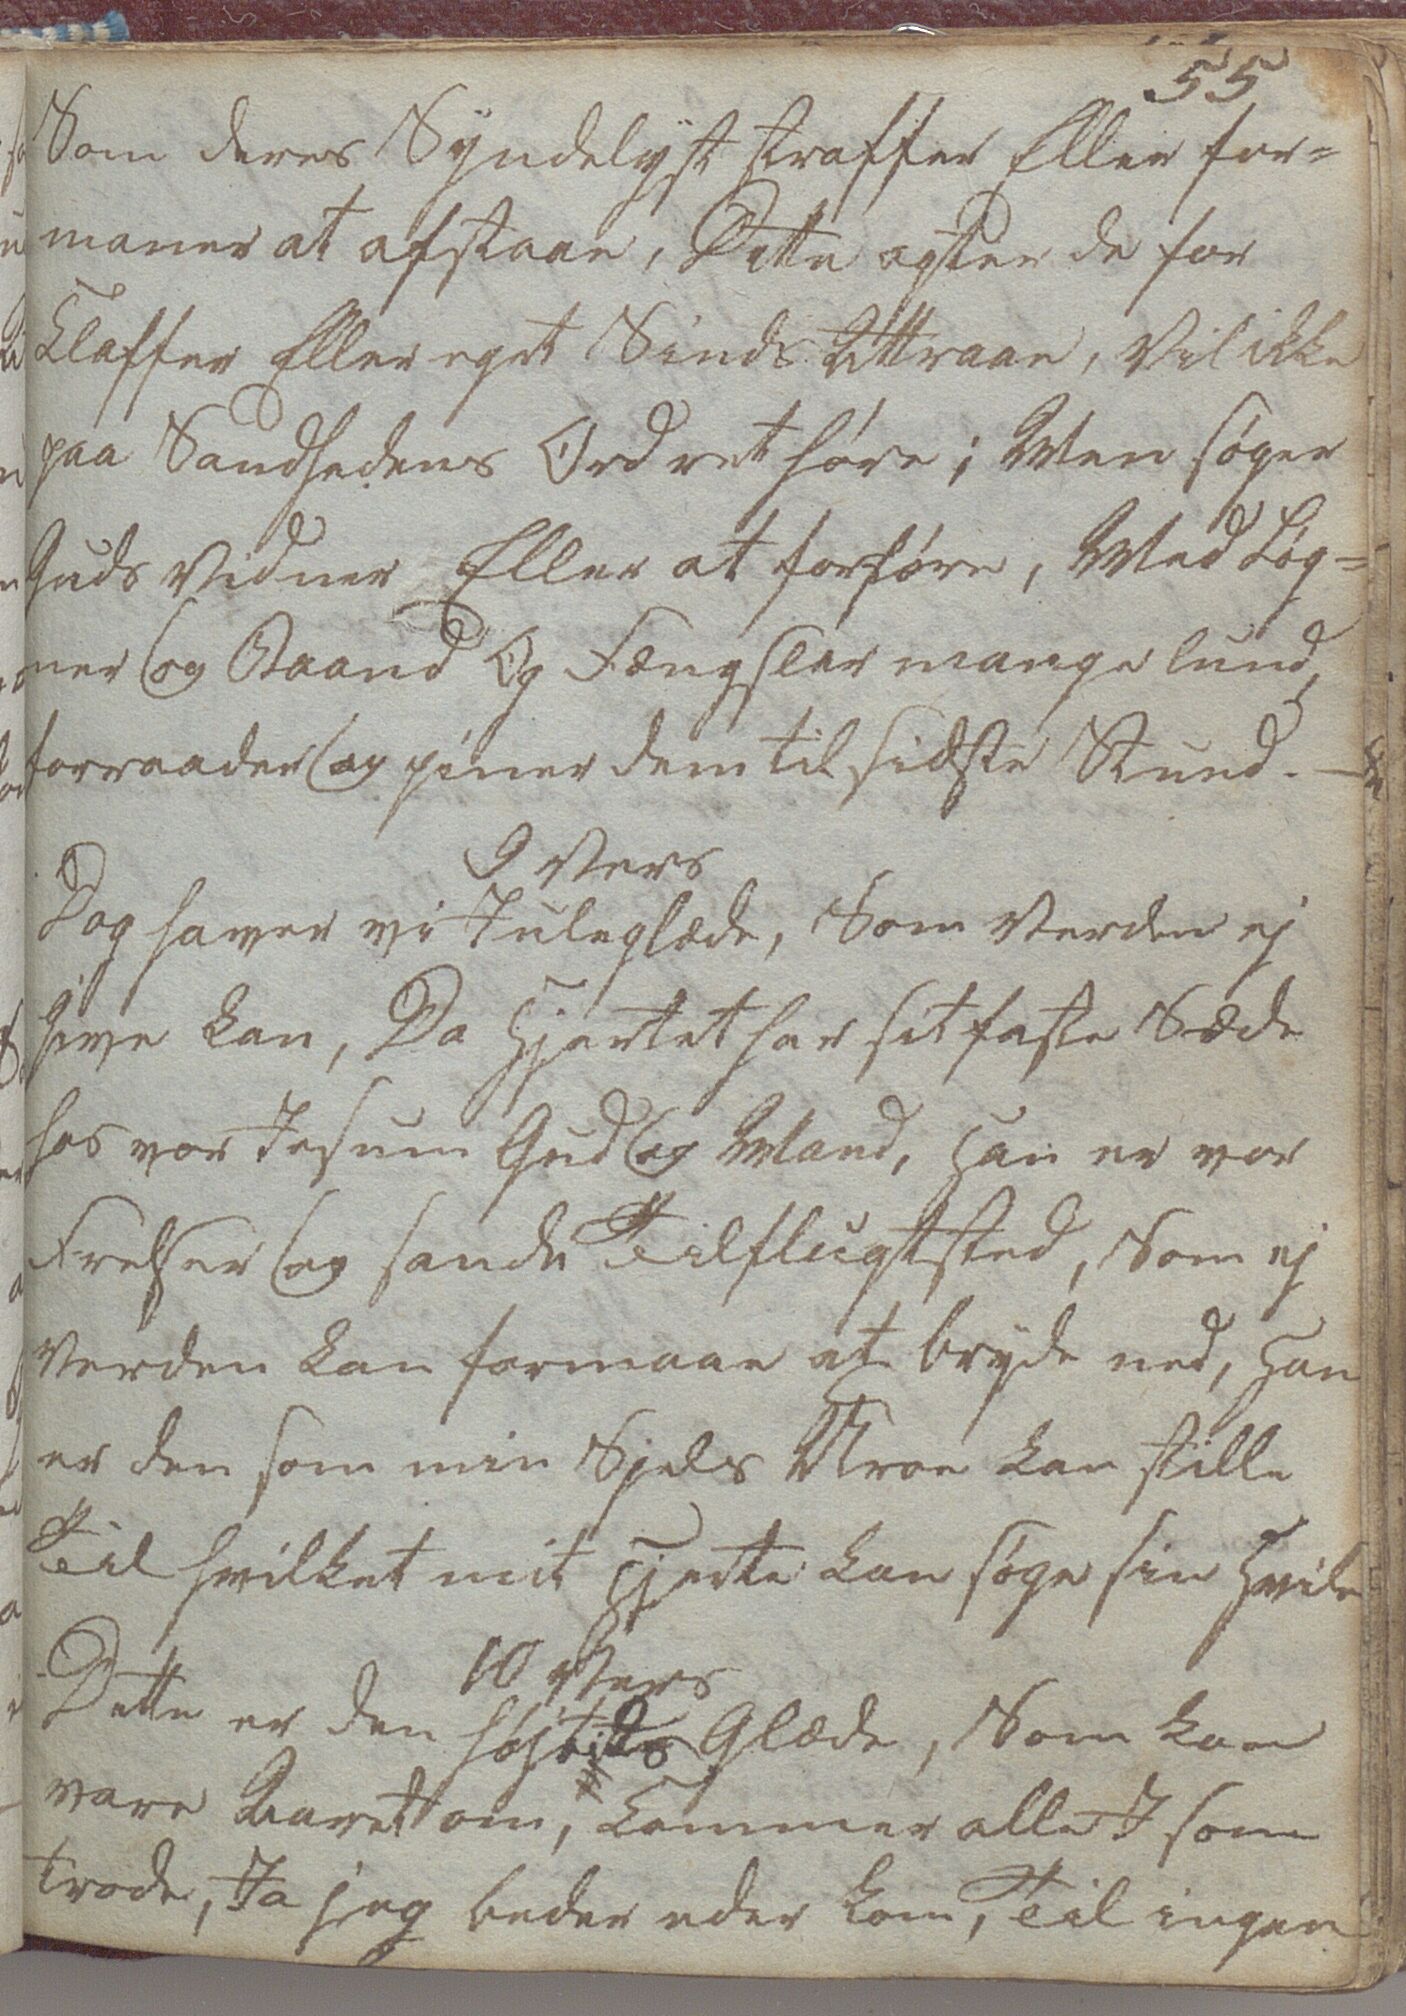 55
Som deres Syndelyst straffer Eller for=
maner at afstaae, Dette agter de for
Klaffer Eller eget Sinds Attraae, Vil ikke
paa Sandhedens Ord ret høre; Men søger
Guds Vidner Eller at forføre, Med Løg=
ner og Baand Og Fængsler mange lund,
forraader og piner dem til sidste Stund. —
9 Vers
Dog haver vi Juleglæde, Som Verden ej
give kan, Da Hjertet har sit faste Sæde
hos vor Jesum Gud og Mand, Han er vor
Frelser og sande Tilflugtsted, Som ej
Verden kan formaae at bryde ned, Han
er den som min Sjels Uroe kan stille
Til hvilket mit Hjerte kan søge sin Hvile
10 Vers
Dette er den høitids Glæde, Som kan
være Aaret om, Kommer alle I som
træde, Ja jeg beder eder kom, Til ingen